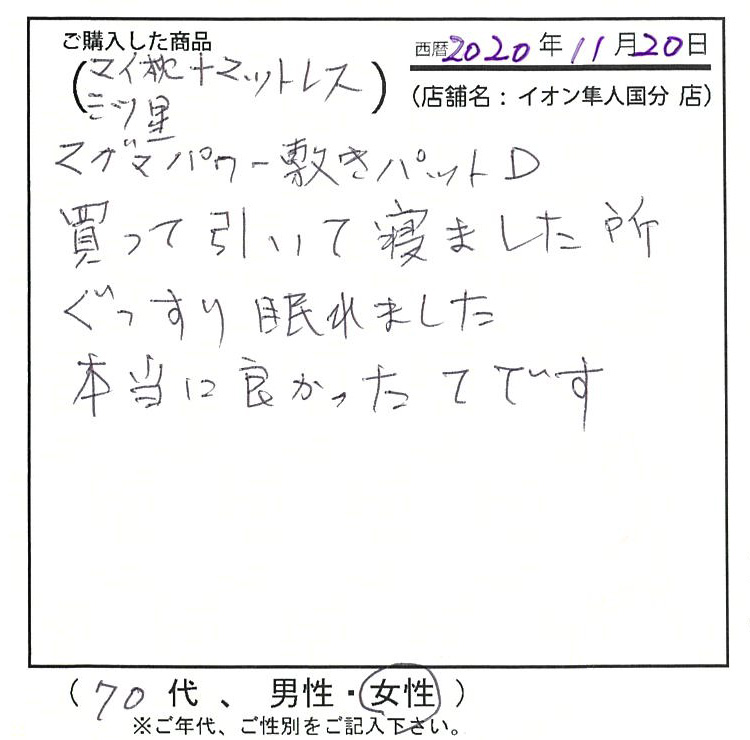 ご購入した商品
西暦2020年11月20日
(マイ枕+マットレス
ミツ星)
(店舗名:イオン隼人国分 店)
マグマパワー敷きパットD
買って引いて寝ました所
ぐっすり眠れました
本当に良かったてです
(70代、男性・女性)
※ご年代、ご性別をご記入下さい。